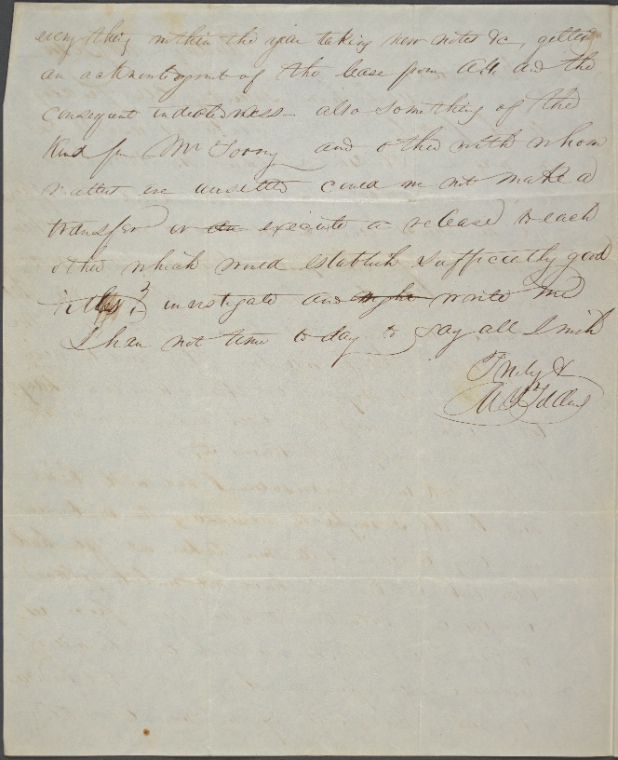 every thing within the year taking new notes &c, getting
an acknowledgment of the lease from A.H. and the
consequent indebtedness - also something of the
kind from Mr and others with whom
matters are unsettled could we not make a
transfer or an execute a release to each
other which would establish sufficiently good
titles? investigate and write me
I have not time to day to say all I wish
Truly &c